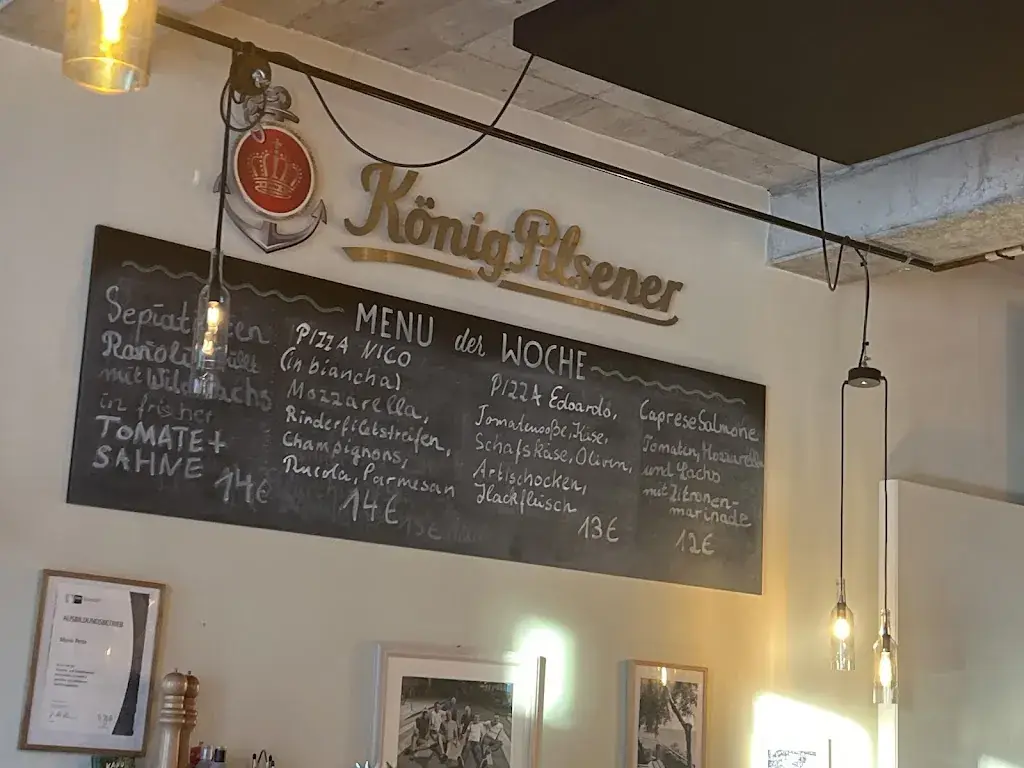 König Pilsener
MENU der WOCHE
mit Wildlachs
in frischer
TOMATE +
SAHNE 14€
PIZZA NICO
(in biancha)
Mozzarella,
Rinderfiletstreifen,
Champignons,
Rucola, Parmesan
14€
PIZZA Edoardo,
Tomatensoße, Käse,
Schafskäse, Oliven,
Artischocken,
Hackfleisch
13€
Caprese Salmone
Tomaten, Mozzarella
und Lachs
mit Zitronen-
marinade
12€
AUSBILDUNGSBETRIEB